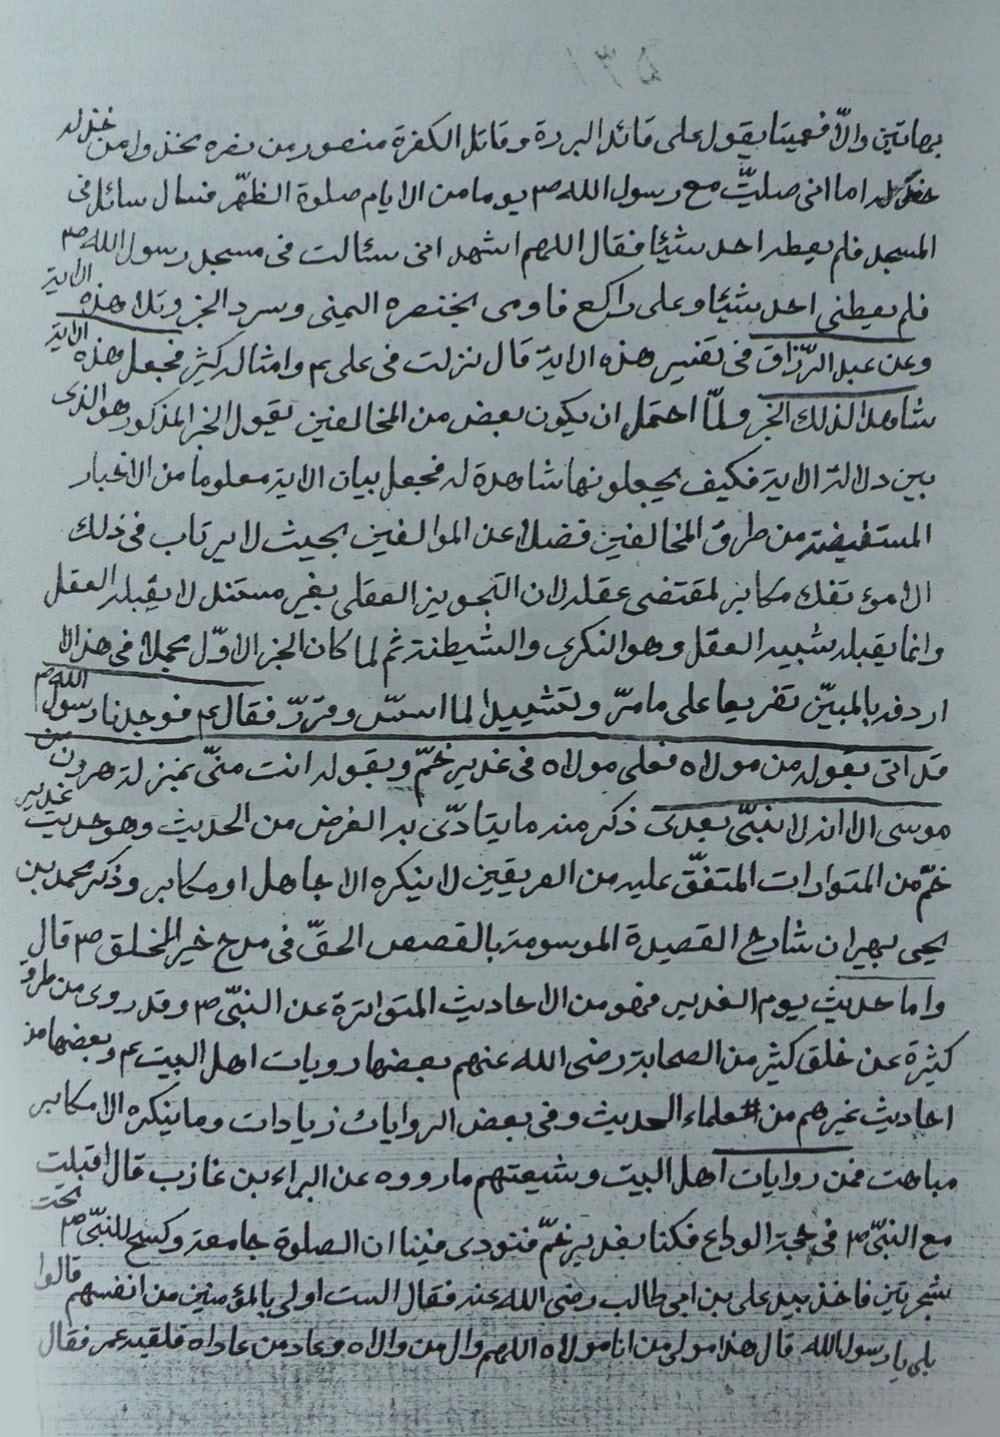 بهاتين والّا فعميتا يقول على قائد البررة وقاتل الكفرة منصور من نصره مخذول من خذله
اما انى صليّت مع رسول الله ص يوما من الايام صلوة الظهّر فسال سائل فى
المسجد فلم يعطه احد شيئا فقال اللهم اشهد انى سئالت فى مسجد رسول الله ص
فلم يعطنى احد شيئا وعلى راكع فاومى بخنصره اليمنى وسرد الخبر وتلا هذه الاية
وعن عبد الرّزاق فى تفسير هذه الاية قال نزلت فى على ع وامثاله كثير فجعل هذه الاية
شاهدا لذلك الخبر ولمّا احتمل ان يكون بعض من المخالفين يقول الخبر المذكور هو الذى
بين دلالة الاية فكيف يجعلونها شاهدة له فجعل بيان الاية معلوما من الاخبار
المستفيضة من طرق المخالفين فضلا عن الموالفين بحيث لا يرتاب فى ذلك
الا مكابر لمقتضى عقله لان التجويز العقلى بغير مستند لا يقبله العقل
وانما يقبله شبيه العقل وهو النكرى والشيطنة ثم لما كان الخبر الاوّل مجملا فى هذا
اردفه بالمبيّن تفريعا على ما مرّ وتشييدا لما اسسّ وقرّر فقال ع فوجدنا رسول الله ص
قد اتى بقوله من مولاه فعلى مولاه فى غدير خمّ وبقوله انت منّى بمنزلة هرون من
موسى الا انه لا نبىّ بعدى ذكر منه ما يتادّى به الغرض من الحديث وهو حديث غدير
خمّ من المتواترات المتفقّ عليه من الفريقين لا ينكره الا جاهل او مكابر وذكر محمد بن
يحيى بهران شارح القصيدة الموسومة بالقصص الحقّ فى مدح خير الخلق ص قال
واما حديث يوم الغدير فهو من الاحاديث المتواترة عن النبّى ص وقد روى من طرق
كثيرة عن خلق كثير من الصحابة رضى الله عنهم بعضها رويات اهل البيت ع وبعضها من
احاديث غيرهم من علماء الحديث وفى بعض الروايات زيادات وما ينكره الا مكابر
مباهت فمن روايات اهل البيت وشيعتهم ما رووه عن البراء بن غازب قال اقبلت
مع النبّى ص فى حجة الوداع فكنا بغدير خمّ فنودى فينا ان الصلوة جامعة وكسح للنبّى ص تحت
شجرتين فاخذ بيد على بن ابى طالب رضى الله عنه فقال الست اولى بالمؤمنين من انفسهم قالوا
بلى يا رسول الله قال هذا مولى من انا مولاه اللهم وال من والاه وعاد من عاداه فلقيه عمر فقال